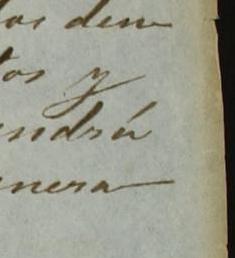 los dem
tos y
endrá
anera